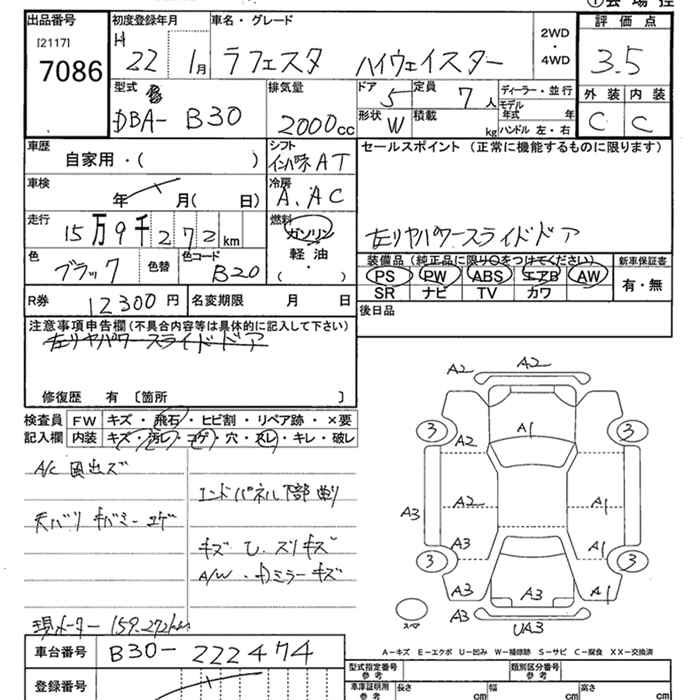 ①会場控
出品番号 初度登録年月 車名・グレード 評価点
[2117] 7086
H 22 1月 ラフェスタ ハイウェイスター 2WD・4WD 3.5
型式 排気量 ドア 5 定員 7人 ディーラー・並行 外装 内装
DBA- B30 2000cc 形状 W 積載 kg モデル年式 年 ハンドル 左・右 C C
車歴 自家用・( ) シフト インパネAT セールスポイント(正常に機能するものに限ります)
車検 年 月( 日) 冷房 A.AC
走行 15万9千272km 燃料 ガソリン 軽油・( ) 左リヤパワースライドドア
色 ブラック 色替 色コード B20 装備品(純正品に限り○をつけてください) 新車保証書
PS PW ABS エアB AW 有・無
SR ナビ TV カワ
R券 12300円 名変期限 月 日 後日品
注意事項申告欄(不具合内容等は具体的に記入して下さい)
左リヤパワースライドドア
修復歴 有 〔箇所 〕
検査員記入欄 FW キズ・飛石・ヒビ割・リペア跡・×要
内装 キズ・汚レ・コゲ・穴・スレ・キレ・破レ
A/C 風出ズ
エンドパネル下部曲り
天バリ キバミ・コゲ
キズ U. スリキズ
A/W・ドミラーキズ
現メーター 159.272km
A2 A2
3 A2 A1 3
A3 A2 A1
A3 A3
3 3
A3 A3 A1
A3 UA3
スペア
A-キズ E-エクボ U-凹み W-補修跡 S-サビ C-腐食 XX-交換済
車台番号 B30-222474
登録番号
型式指定番号 参考 類別区分番号 参考
車庫証明用 参考 長さ cm 幅 cm 高さ cm